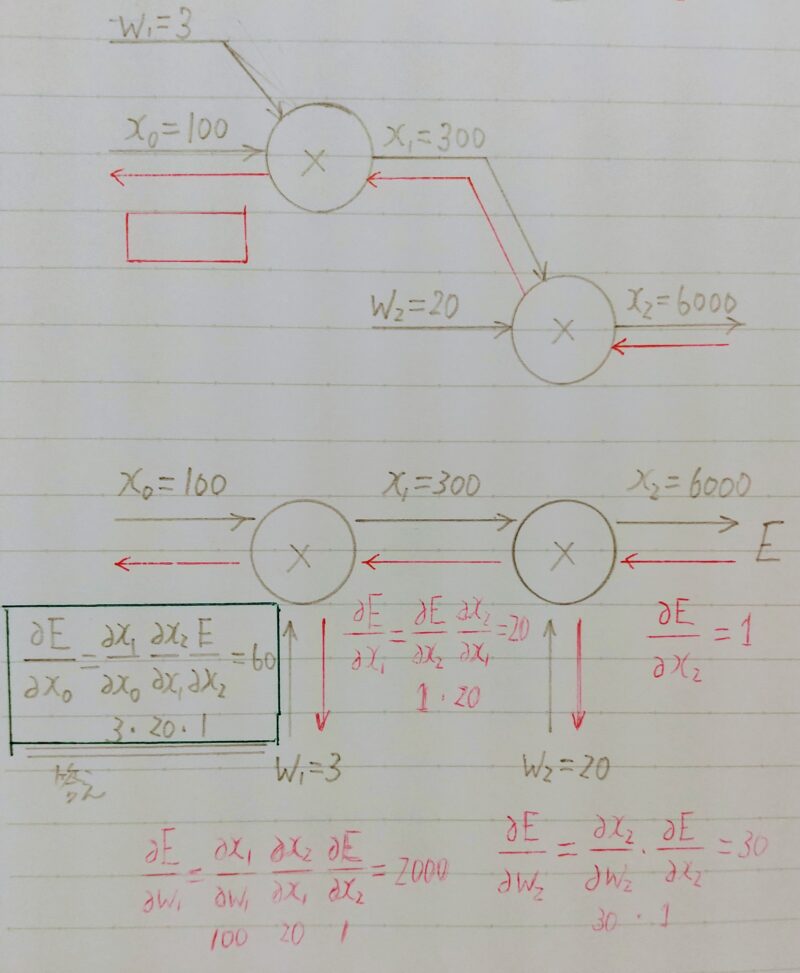 W₁=3
x₀=100
x₁=300
×
W₂=20
x₂=6000
×
x₀=100
x₁=300
x₂=6000
×
×
E
∂E/∂x₀=∂x₁/∂x₀ ∂x₂/∂x₁ E/∂x₂=60
3・20・1
答え
∂E/∂x₁=∂E/∂x₂ ∂x₂/∂x₁=20
1・20
∂E/∂x₂=1
W₁=3
W₂=20
∂E/∂W₁=∂x₁/∂W₁ ∂x₂/∂x₁ ∂E/∂x₂=2000
100 20 1
∂E/∂W₂=∂x₂/∂W₂・∂E/∂x₂=30
30・1